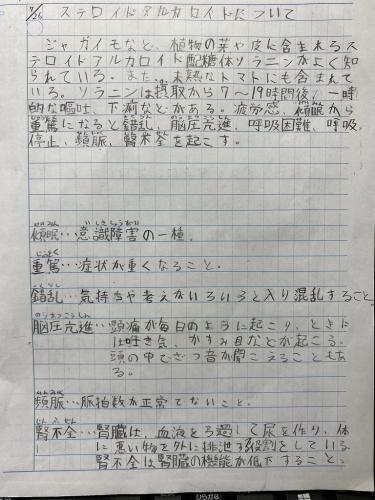 7/26 ステロイドアルカロイドについて
ジャガイモなど、植物の芽や皮に含まれるス
テロイドアルカロイド配糖体ソラニンがよく知
られている。また、未熟なトマトにも含まれて
いる。ソラニンは摂取から7〜19時間後、一時
的な嘔吐、下痢などがある。疲労感、傾眠から
重篤になると錯乱、脳圧亢進、呼吸困難、呼吸
停止、頻脈、腎不全を起こす。
傾眠…意識障害の一種。
重篤…症状が重くなること。
錯乱…気持ちや考えがいろいろと入り混乱すること。
脳圧亢進…頭痛が毎日のように起こり、ときに
は吐き気、かすみ目などが起こる。
頭の中でざつ音が聞こえることもあ
る。
頻脈…脈拍数が正常でないこと。
腎不全…腎臓は、血液をろ過して尿を作り、体
に悪い物を外に排泄する役割をしている。
腎不全は腎臓の機能が低下すること。